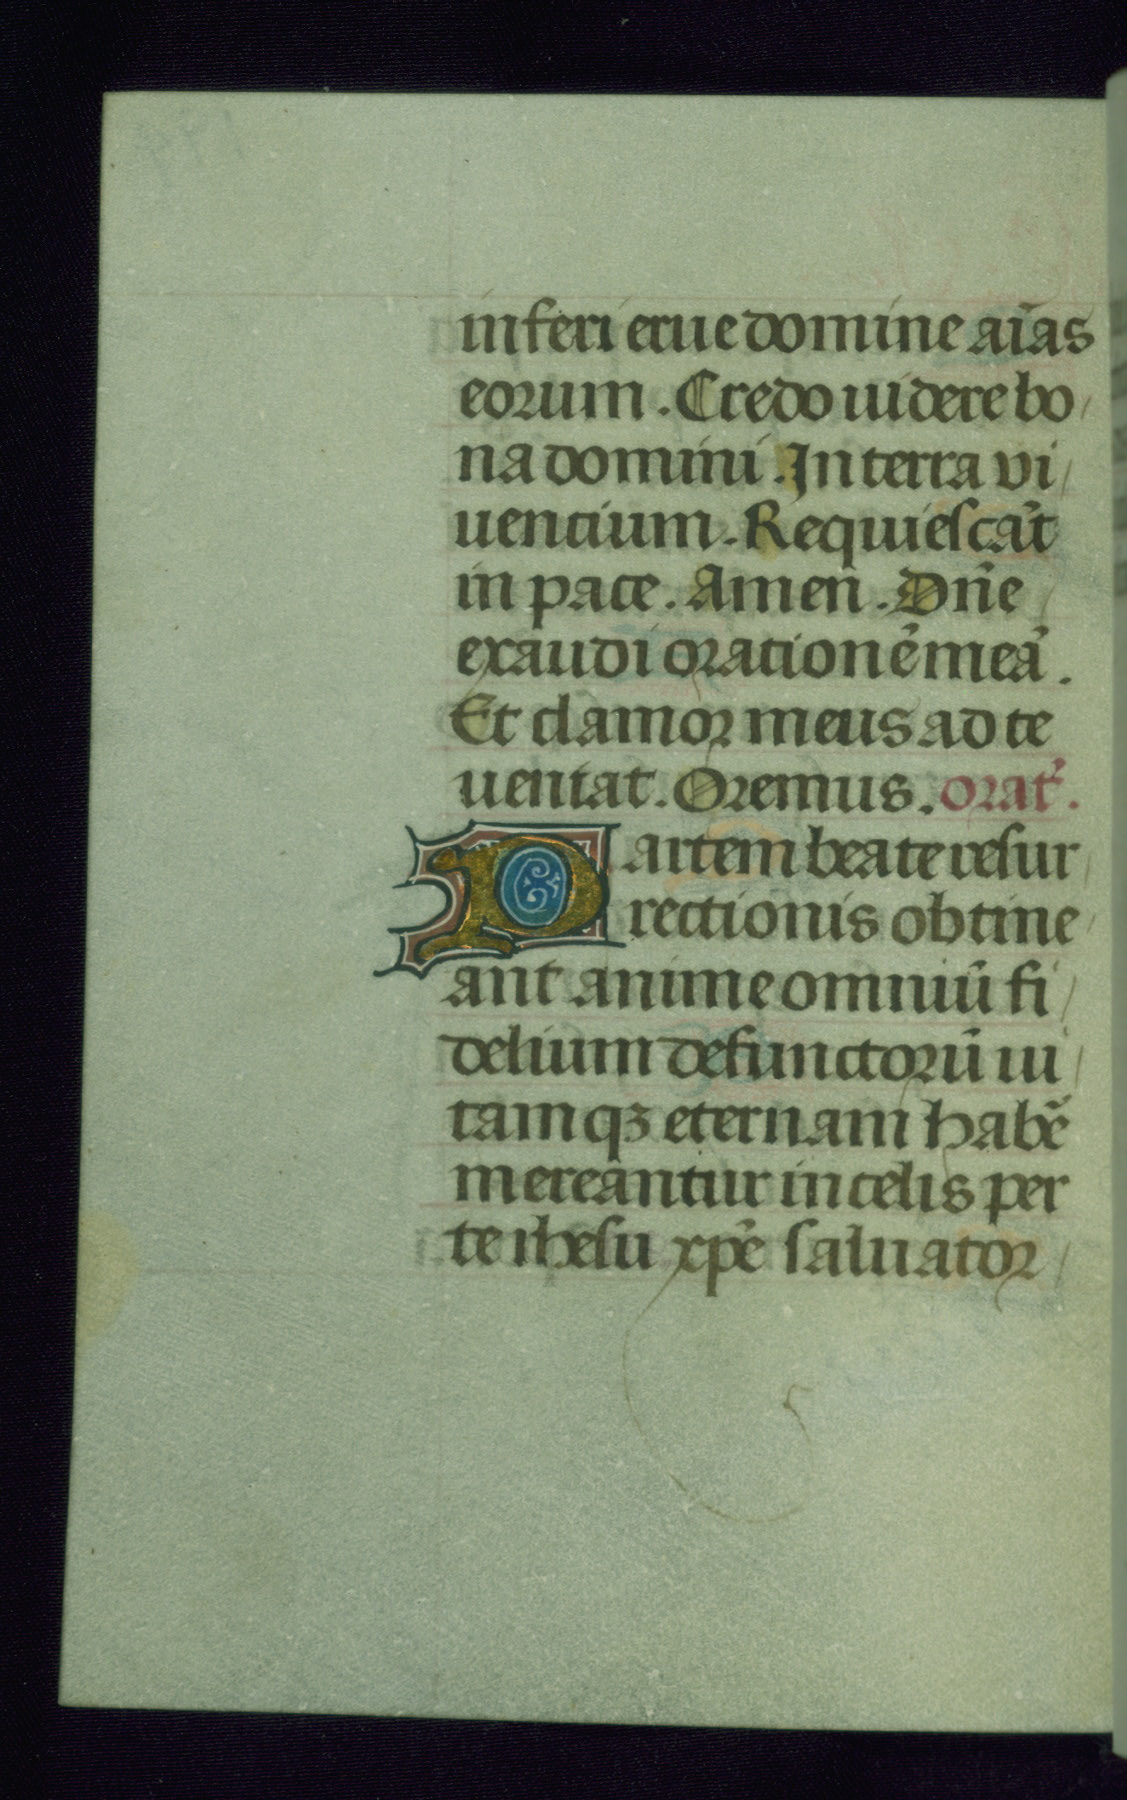 inferi erue domine aĩas
eorum. Credo uidere bo
na domini. In terra vi
uentium. Requiescãt
in pace. Amen. Dñe
exaudi orationẽ meã.
Et clamor meus ad te
ueniat. Oremus. orat̃.
Partem beate resur
rectionis obtine
ant anime omniũ fi
delium defunctorũ ui
tamqꝫ eternam habẽ
mereantur in celis per
te ihesu xpẽ saluator